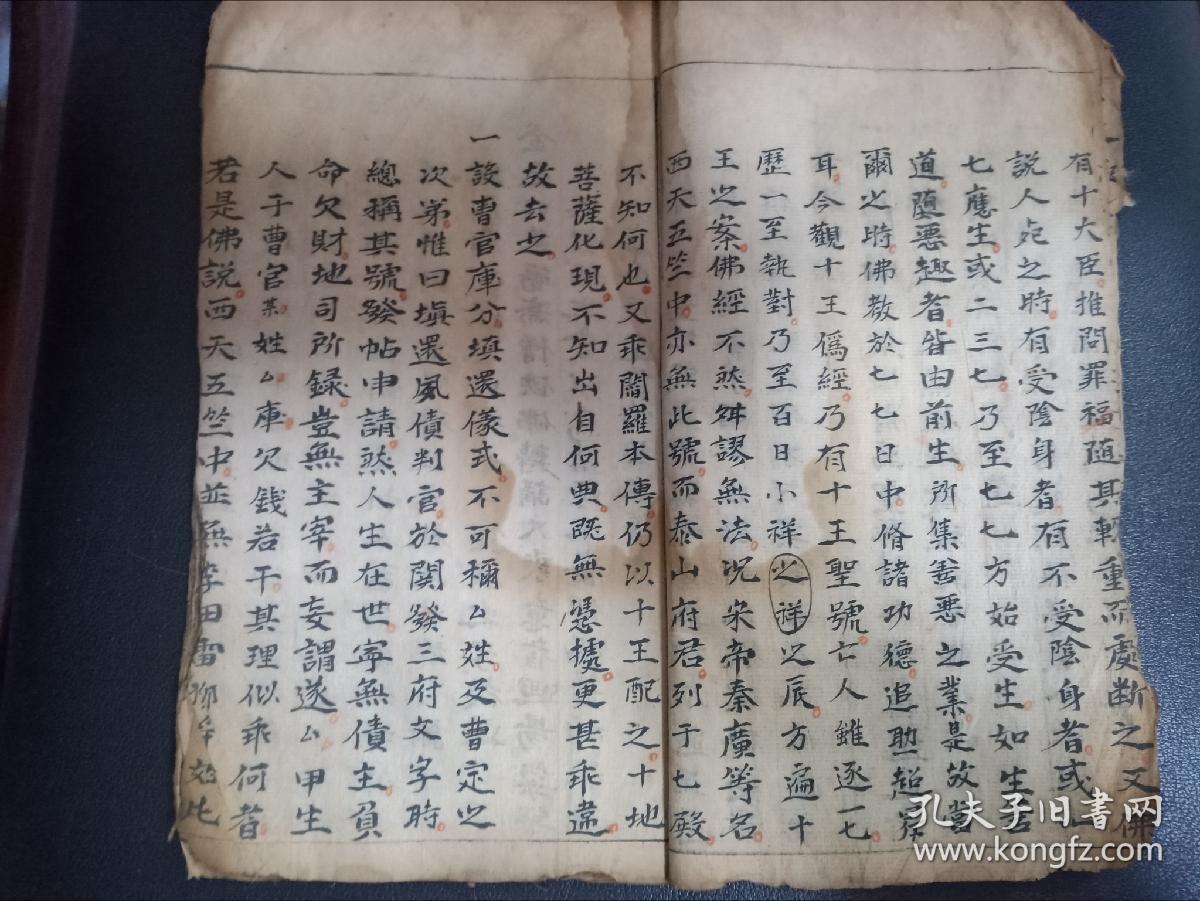 有十大臣推問罪福隨其輕重而處断之又佛
説人死之時有受陰身者有不受陰身者或
七應生或二三七乃至七七方始受生如生君
道墮惡趣者皆由前生所集善惡之業是故當
爾之時佛教於七七日中脩諸功德追助超昇
耳今觀十王偽經乃有十王聖號亡人雖逐一七
歷一至執對乃至百日小祥之祥之辰方遍十
王之案佛經不然舛謬無法况宋帝秦廣等名
西天五竺中亦無此號而泰山府君列于七殿
不知何也又乖閻羅本傳仍以十王配之十地
菩薩化現不知出自何典既無憑據更甚乖違
故去之
一設曹官庫分填還儀式不可稱厶姓及曹定之
次第惟曰填還夙債判官於関發三府文字時
總稱其號發帖申請然人生在世寕無債主負
命欠財地司所録豈無主宰而妄謂遂厶甲生
人于曹官某姓厶庫欠錢若干其理似乖何者
若是佛説西天五竺中並無李田雷柳等姓此
孔夫子旧書网
www.kongfz.com